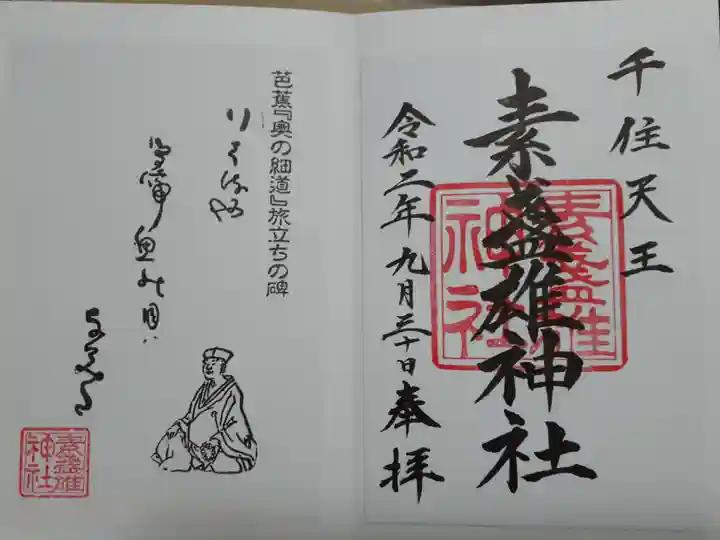 千住天王
素盞雄神社
素盞雄
神社
令和二年九月三十日奉拝
芭蕉『奥の細道』旅立ちの碑
行く
鳥
魚の目ハ
素盞雄
神社